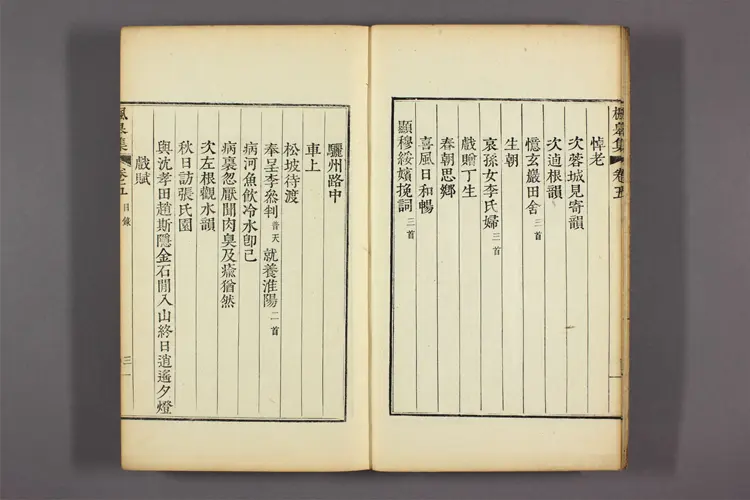 楓皐集 卷五
悼老
次蓉城見寄韻
次迪根韻
憶玄巖田舍 三首
生朝
哀孫女李氏婦 三首
戲贈丁生
春朝思鄉
喜風日和暢
顯穆綏嬪挽詞 三首
驪州路中
車上
松坡待渡
奉呈李叅判 普天 就養淮陽 二首
病河魚飮冷水卽已
病裏忽厭聞肉臭及瘉猶然
次左根觀水韻
秋日訪張氏園
與沈孝田趙斯隱金石閒入山終日逍遙夕燈
戲賦
楓皐集 卷之五 目錄 三